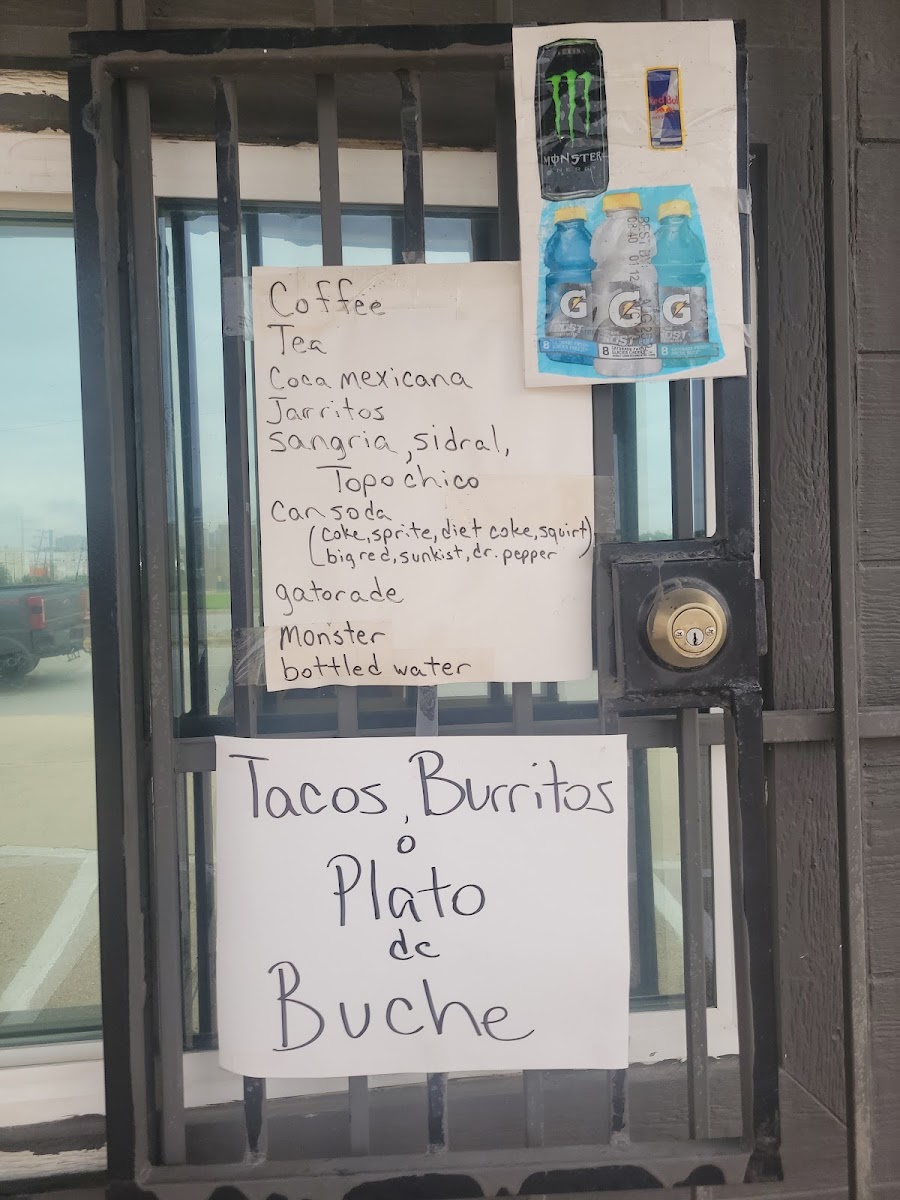 MONSTER
ENERGY
Red Bull
BEST BY
G G G
FROST
8 8 8
Coffee
Tea
Coca mexicana
Jarritos
sangria, sidral,
Topo chico
can soda
(coke, sprite, diet coke, squirt)
(big red, sunkist, dr. pepper
gatorade
Monster
bottled water
Tacos, Burritos
o
Plato
de
Buche